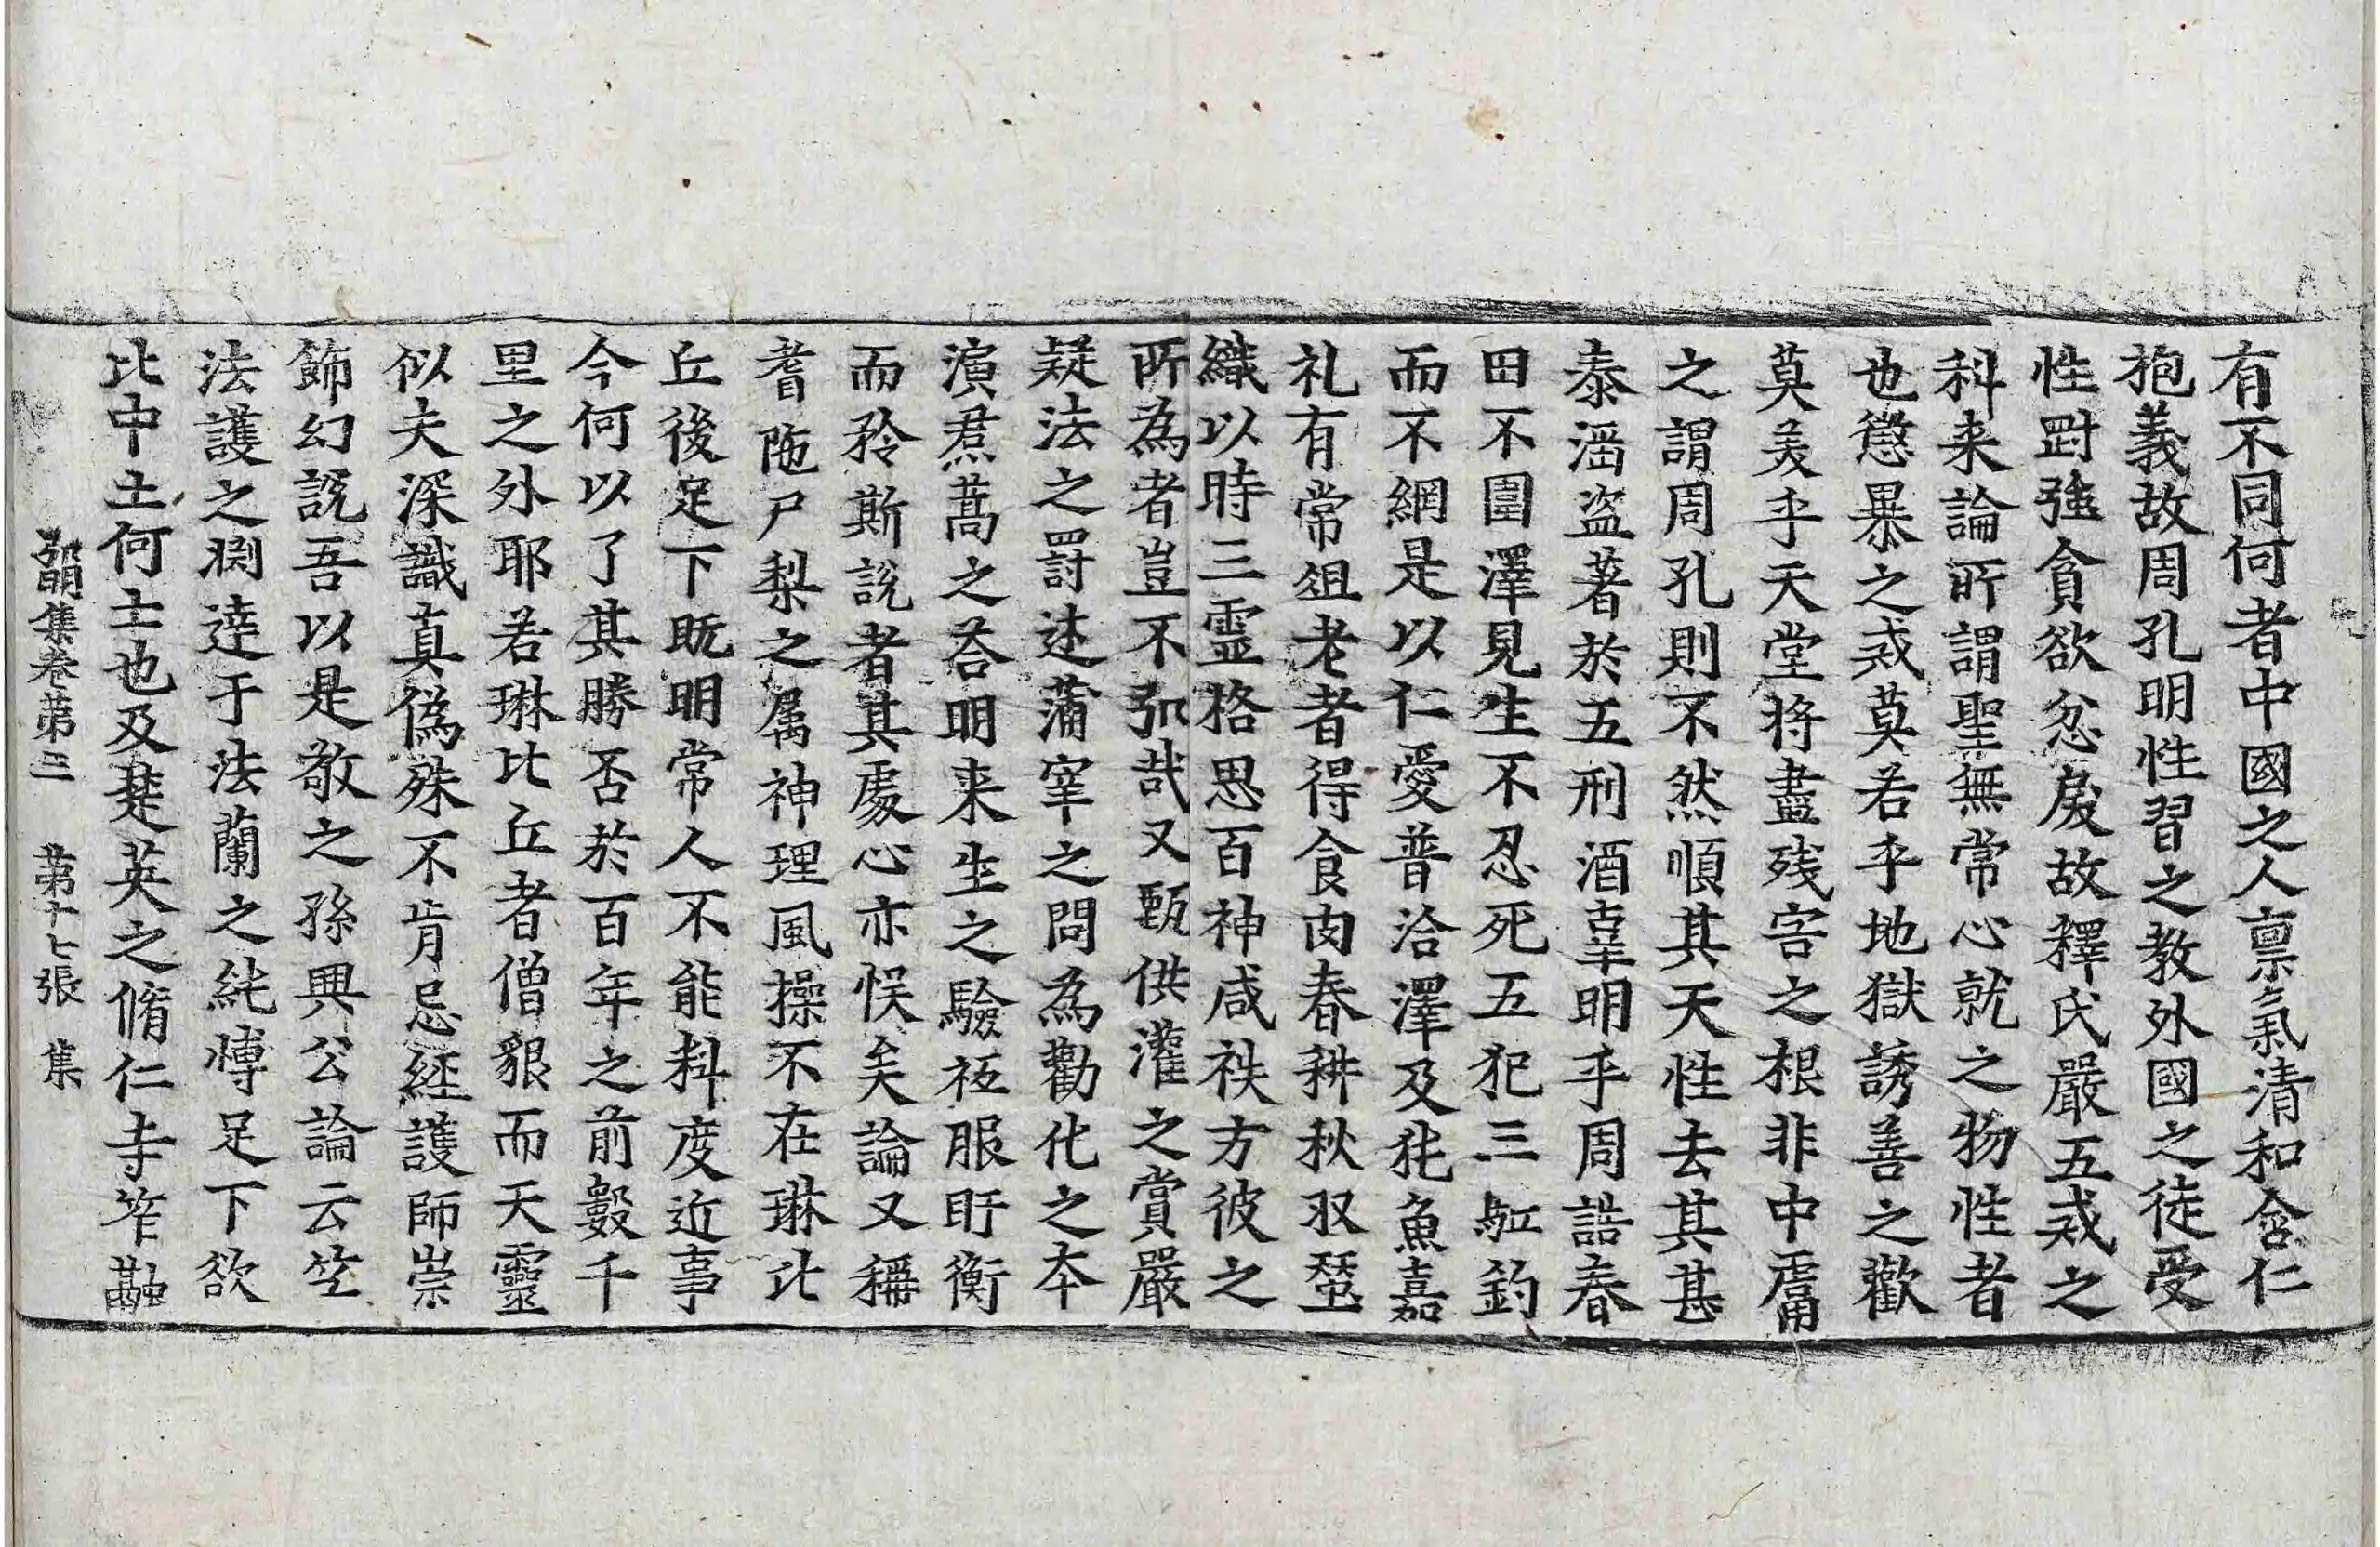 有不同何者中國之人禀氣清和含仁
抱義故周孔明性習之教外國之徒受
性㓻強貪欲忿戾故釋氏嚴五戒之
科来論所謂聖無常心就之物性者
也懲暴之戒莫若乎地獄誘善之歡
莫羙乎天堂将盡残害之根非中庸
之謂周孔則不然順其天性去其甚
泰滛盗著於五刑酒辜明乎周誥春
田不圍澤見生不忍死五犯三䮂釣
而不網是以仁愛普洽澤及㹠魚嘉
礼有常俎老者得食肉春耕秋収蚕
織以時三霊格思百神咸袟方彼之
所為者豈不弘哉又甄供灌之賞嚴
疑法之罸述蒲宰之問為勸化之本
演焄蒿之荅明来生之驗袨服盱衡
而矜斯說者其處心亦悮矣論又稱
耆陁尸梨之属神理風操不在琳比
丘後足下既明常人不能料度近事
今何以了其勝否於百年之前數千
里之外耶若琳比丘者僧貌而天靈
似夫深識真偽殊不肯忌経護師崇
飾幻說吾以是敬之孫興公論云竺
法護之㴊逹于法蘭之純愽足下欲
比中土何士也及楚英之脩仁寺笮融
弘明集卷苐三　苐十七張　集